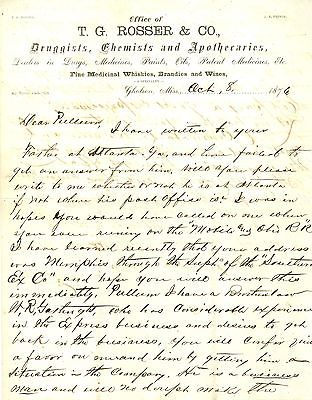 Office of
T. G. ROSSER & CO.,
Druggists, Chemists and Apothecaries,
Dealers in Drugs, Medicines, Paints, Oils, Patent Medicines, Etc
Fine Medicinal Whiskies, Brandies and Wines,
A SPECIALTY.
Gholson, Miss., Oct 8. 1876
Dear Pullum,
I have written to your
Father at Atlanta, Ga, and have failed to
get an answer from him, will you please
write to me whether or not he is at Atlanta
if not where his post office is. I was in
hopes you would have called on me when
you were runing on the "Mobile and Ohio R R"
I have learned recently that your address
was Memphis through the Supt of the "Southern
Ex Co", and hope you will answer this
immediately. Pullum I have a Brotherinlaw
W. R. who has Considerable experience
in the Express business and desires to get
back in the business, You will Confer quite
a favor on me and him by getting him a
situation in the Company, He is a business
man and will no doubt make the